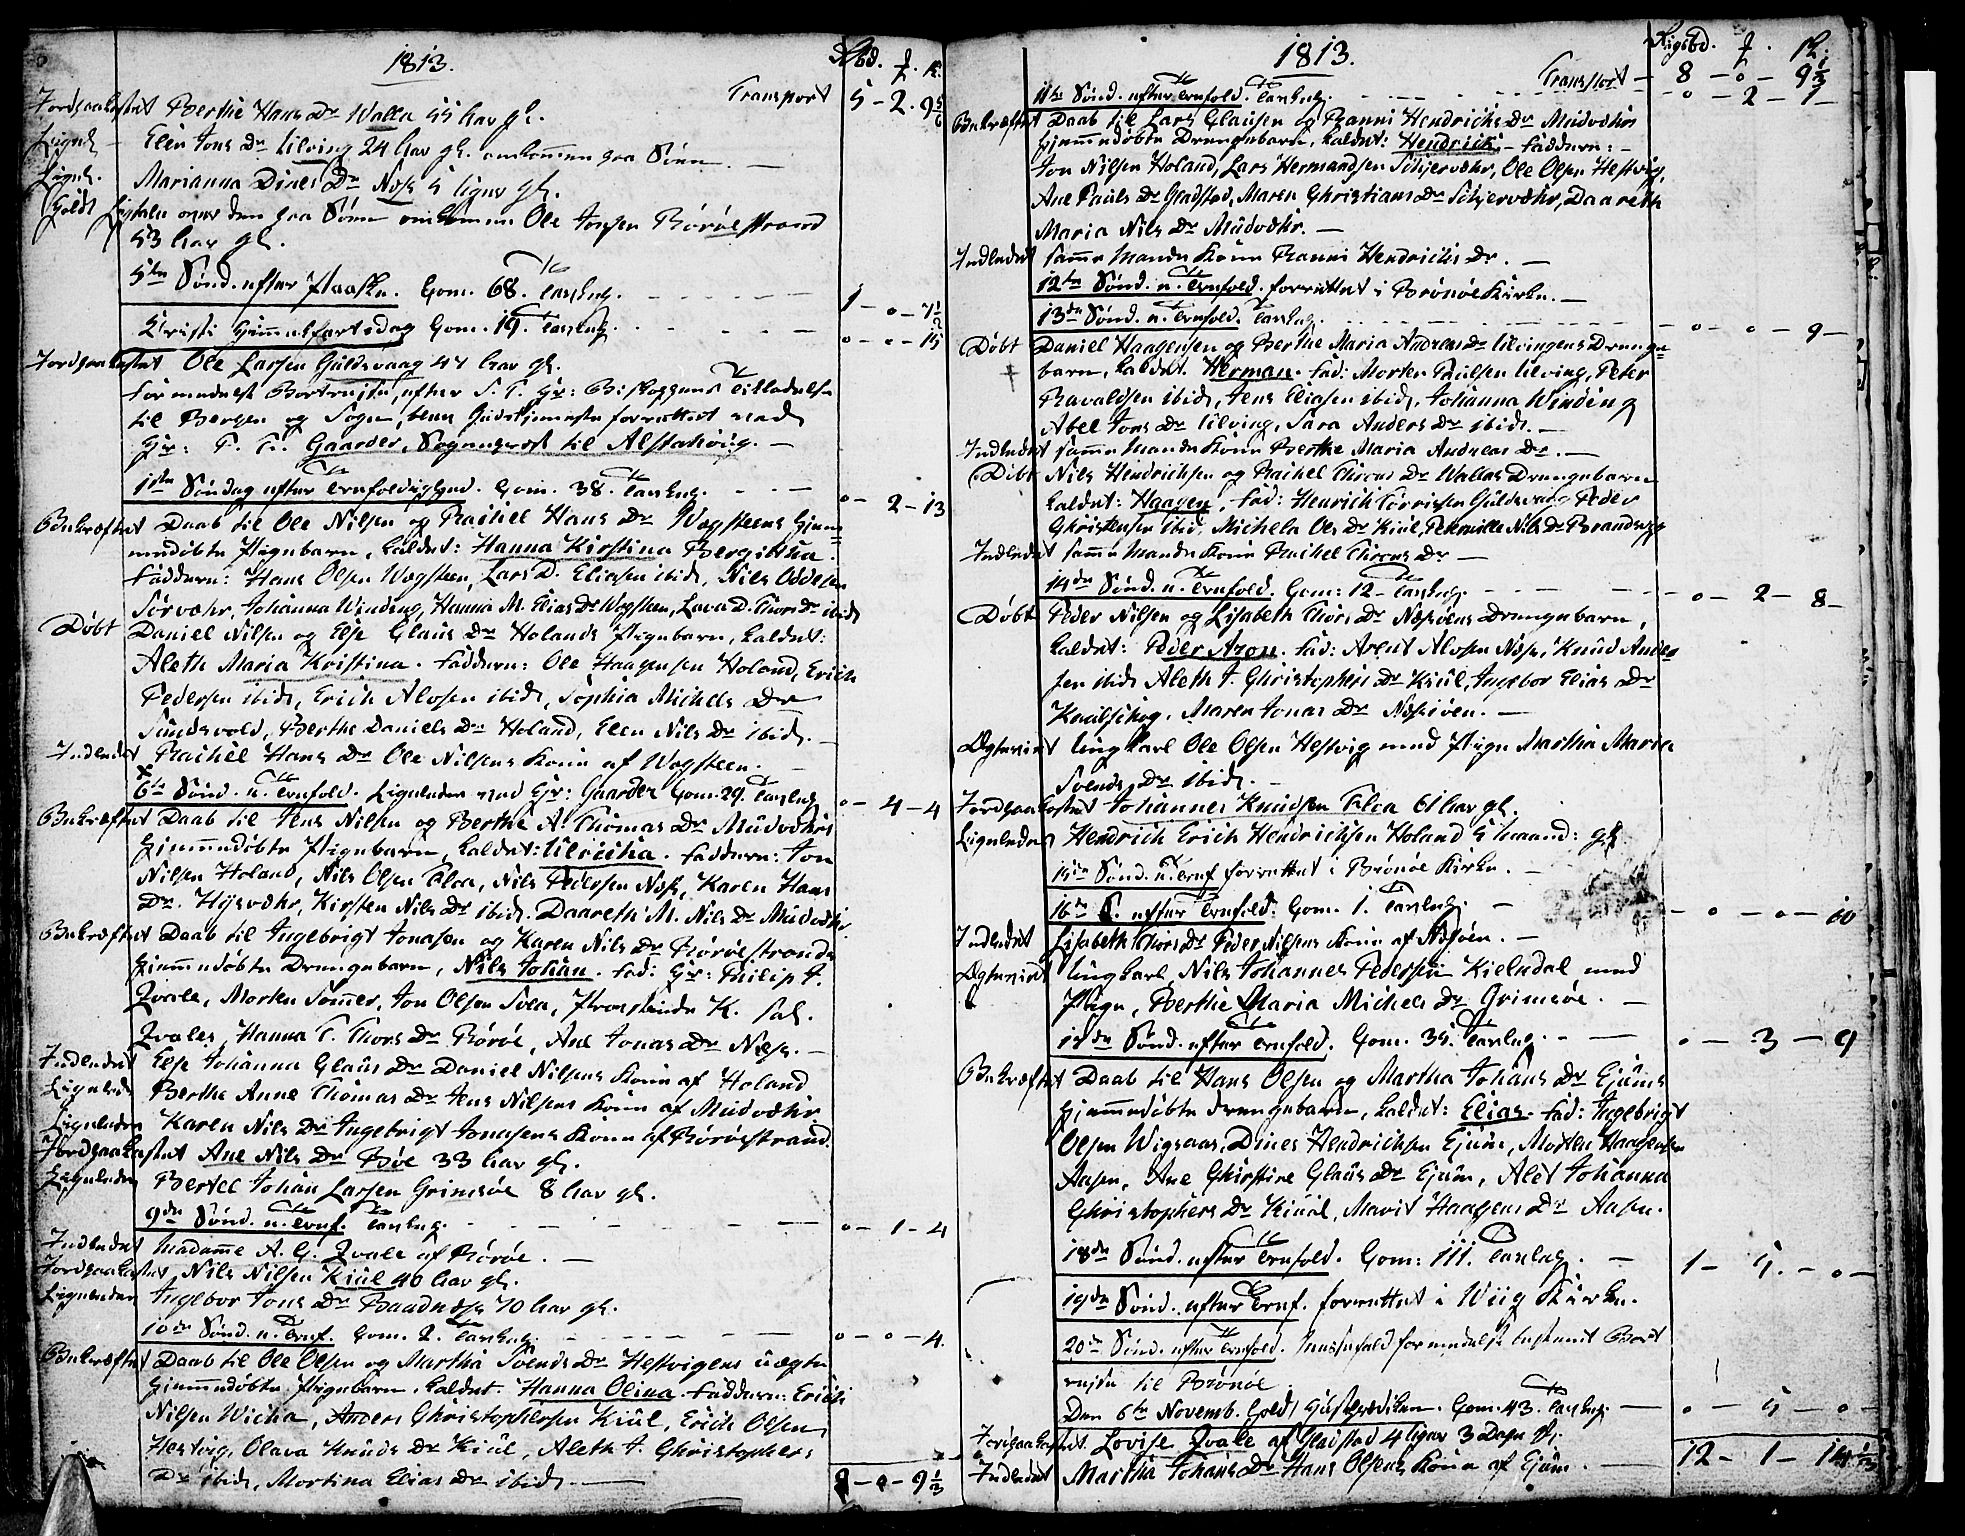 1813.
Rbd. ƒ. ß.
Transport 5 - 2 - 9
Jordpaakastet Berthe Hans Dr Walla 55 Aar gl.
Ligel. Elen Jons Dr Tilving 24 Aar gl. omkommen paa Søen
Ligel. Marianna Dines Dr Næss 5 Uger gl.
Holdt Ligtale over den paa Søen omkomne Ole Jonsen Rörøestrand
53 Aar gl.
5te Sönd. efter Paaske. Com. 68. Tavlep. 1 - 0 - 7½
Christi Himmelfarts dag Com. 19. Tavlep. 0 - 0 - 15
Jordpaakastet Ole Larsen Guldsvaag 47 Aar gl.
Formedelst Bortrejse, efter S. T. Hr: Biskoppens Tilladelse
til Bergen og Sogn, blev Gudstjeneste forrettet ved
Hr: P. T. Gaarder, Sognepræst til Alstahoug.
1ste Søndag efter Trefoldighed. Com. 38. Tavlep. 0 - 2 - 13
Bekræftet Daab til Ole Nilsen og Rachel Hans Dr Wogsteens hjem-
medöbte Pigebarn, kaldet: Hanna Kirstina Bergittha.
Faddere: Hans Olsen Wogsteen, Lars D. Eliasen ibid, Nils Oddesen
Sörvær, Johanna Winding, Hanna M. Elias Dr Wogsteen, Lava D. Thors Dr ibid
Döbt Daniel Nilsen og Else Claus Dr Holands Pigebarn, kaldet:
Aleth Maria Kristina. Faddere: Ole Haagensen Holand, Erich
Pedersen ibid, Erich Alosen ibid, Sophia Michels Dr
Sundsvold, Berthe Daniels Dr Holand, Elen Nils Dr ibid.
Indledet Rachel Hans Dr Ole Nilsens Kone af Wogsteen.
6te Sönd. e. Trefold. Ligeledes ved Hr: Gaarder Com. 29. Tavlep. 0 - 4 - 4
Bekræftet Daab til Jens Nilsen og Berthe A. Thomas Dr Mudværs
hjemmedöbte Pigebarn, kaldet: Ulricha. Faddere: Jon
Nilsen Holand, Nils Olsen Floa, Nils Pedersen Næss, Karen Hans
Dr. Hysvær, Kirsten Nils Dr ibid. Daareth M. Nils Dr Mudvær.
Bekræftet Daab til Ingebrigt Jonasen og Karen Nils Dr Rörøestrands
hjemmedöbte Drengebarn, Nils Johan. Fad: Hr: Philip J.
Qvale, Morten Sommer, Jon Olsen Svea, Provstinde K. sal.
Qvales, Hanna P. Thors Dr Rörøe, Ane Jonas Dr Næss.
Indledet Else Johanna Claus Dr Daniel Nilsens Kone af Holand
Ligeledes Berthe Anne Thomas Dr Jens Nilsens Kone af Mudvær
Ligeledes Karen Nils Dr Ingebrigt Jonasens Kone af Rörøestrand.
Jordpaakastet Ane Nils Dr Bøe 33 Aar gl.
Ligeledes Bertel Johan Larsen Grimsøe 8 Aar gl.
9de Sönd. e. Tref. Tavlep. 0 - 1 - 4
Indledet Madamme A. G. Qvale af Rörøe.
Jordpaakastet Nils Nilsen Kiul 40 Aar gl.
Ligeledes Ingebor Jons Dr Baadnæss 70 Aar gl.
10de Sönd. e. Tref. Com. 2. Tavlep. 0 - 0 - 4.
Bekræftet Daab til Ole Olsen og Martha Svends Dr Hestvigens uægte
hjemmedöbte Pigebarn. kaldet. Hanna Olina. Faddere: Erich
Nilsen Wicha, Anders Christophersen Kiul, Erich Olsen
Hestvig, Olava Knuds Dr Kiul, Aleth J. Christophers
Dr ibid, Mortina Elias Dr ibid.
8 - 0 - 9½
1813.
Rigsbd. ƒ. ß.
Transport - 8 - 0 - 9½
11te Sönd. efter Trefold. Tavlep. 0 - 2 - 1
Bekræftet Daab til Lars Clausen og Ranni Hendrichs Dr Mudværs
hjemmedöbte Drengebarn, kaldet: Hendrich - Faddere: -
Jon Nilsen Holand, Lars Hermandsen Schjervær, Ole Olsen Hestvig,
Ane Pauls Dr Gladstad, Maren Christians Dr Schjervær, Daareth
Maria Nils Dr Mudvær.
Indledet samme Mands Kone Ranni Hendrichs Dr.
12te Sönd. e. Trefold. forrettet i Brönøe Kirke.
13de Sönd. e. Trefold. Tavlep. 0 - 0 - 9
Döbt Daniel Haagensen og Berthe Maria Andreas Dr Tilvingens Drenge-
barn, kaldet. Herman. Fad: Morten Paulsen Tilving, Peter
Ravaldsen ibid, Jens Eliasen ibid, Johanna Winding
Abel Jons Dr Tilving, Sara Anders Dr ibid.
Indledet samme Mands Kone Berthe Maria Andreas Dr.
Döbt Nils Hendrichsen og Rachel Thores Dr Wallas Drengebarn
kaldet: Haagen. Fad: Henrich Torrisen Guldsvaag Peder
Christensen ibid, Michela Ols Dr Kiul, Peternille Nils Dr Brandsvig
Indledet samme Mands Kone Rachel Thores Dr
14de Sönd. e. Trefold. Com: 12 - Tavlep. 0 - 2 - 8
Döbt Peder Nilsen og Lisabeth Thors Dr Næsöens Drengebarn,
kaldet: Peder Aron. Fad: Arent Alosen Næss, Knud Ander-
sen ibid Aleth J. Christophers Dr Kiul, Ingebor Elias Dr
Knulschog, Maren Jonas Dr Næsøen.
Ægteviet Ungkarl Ole Olsen Hestvig med Pige Martha Maria
Svends Dr ibid.
Jordpaakastet Johannes Knudsen Floa 61 Aar gl.
Ligeledes Hendrich Erich Hendrichsen Holand 5 Maand: gl.
15de Sönd. e. Tref forrettet i Brönøe Kirke.
16de S. efter Trefold: Com. 1. Tavlep. 0 - 0 - 10
Indledet Lisabeth Thors Dr Peder Nilsens Kone af Næsøen.
Ægteviet Ungkarl, Nils Johannes Pedersen Kieldal med
Pige, Berthe Maria Michels Dr Grimsøe.
17de Sönd. efter Trefold. Com. 35. Tavlep. 0 - 3 - 9
Bekræftet Daab til Hans Olsen og Martha Johans Dr Ejums
hjemmedöbte Drengebarn, kaldet: Elias. Fad: Ingebrigt
Olsen Wigsaas, Dines Hendrichsen Ejum, Morten Haagensen
Aasen, Ane Chirstine Claus Dr Ejum, Alet Johanna
Christophers Dr Kiul, Marit Haagens Dr Aasen.
18de Sönd. efter Trefold. Com: 111. Tavlep. 1 - 5. - 0
19de Sönd. efter Tref. forrettet i Wiig Kirke.
20de Sönd. efter Trefold. Messefald formedelst bestemt Bort
rejse til Brönøe
Den 6te Novemb. holdt Höstprædiken. Com. 43. Tavlep. 0 - 5 - 0
Jordpaakastet. Lovise Qvale af Gladstad 4 Uger 3 Dage gl.
Indledet Martha Johans Dr Hans Olsens Kone af Ejum.
12 - 1 - 14½